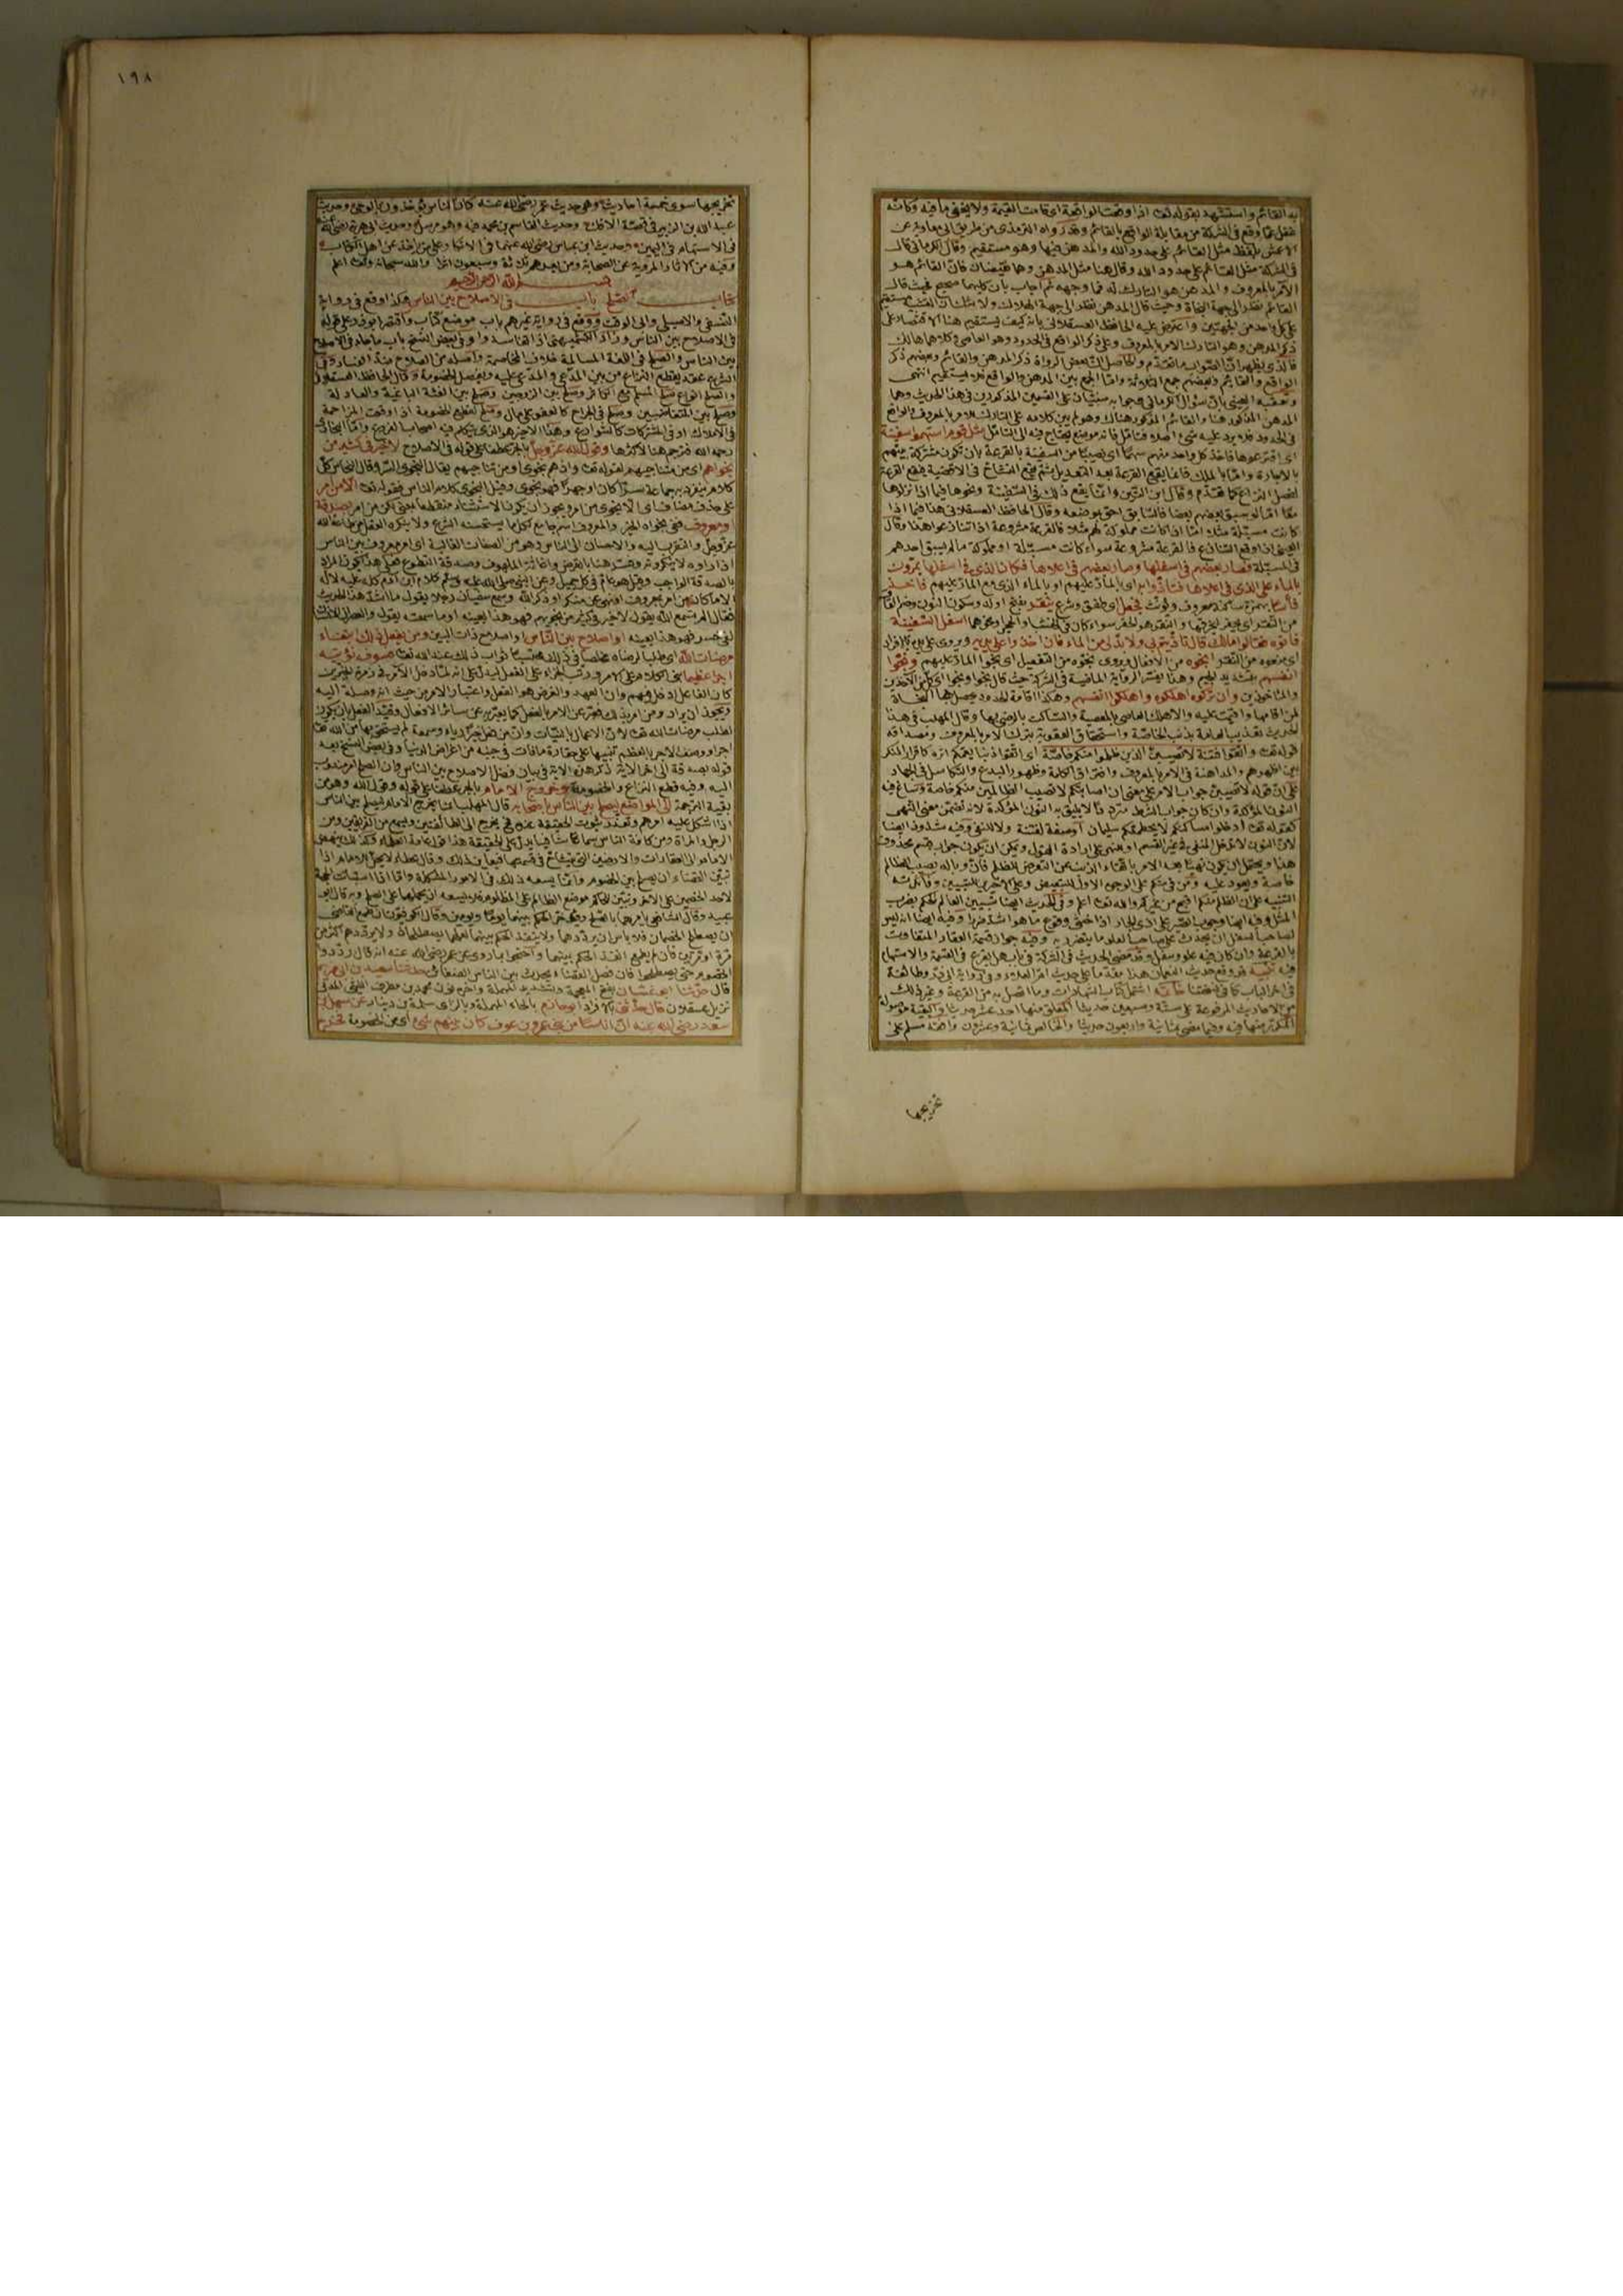 به القائم واستشهد بقوله تعالى اذا وقعت الواقعة اى قامت القيمة ولا يخفى ما فيه وكانه
غفل عما وقع فى الشركة من مقابلة الواقع بالقائم وقد رواه الترمذى من طريق ابى معاوية عن
الاعمش بلفظ مثل القائم على حدود الله والمدهن فيها وهو مستقيم وقال الكرمانى قال
فى الشركة مثل القائم على حدود الله وقال هنا مثل المدهن وهما نقيضان فان القائم هو
الآمر بالمعروف والمدهن هو التارك له فما وجهه ثم اجاب بان كليهما صحيح فحيث قال
القائم نظر الى جهة النجاة وحيث قال المدهن نظر الى جهة الهلاك ولا شك ان التشبيه مستقيم
على كل واحد من الجهتين واعترض عليه الحافظ العسقلانى بانه كيف يستقيم هنا الاقتصار على
ذكر المدهن وهو التارك للامر بالمعروف وعلى ذكر الواقع فى الحدود وهو العاصى وكلاهما هالك
فالذى يظهر ان الصواب ما تقدم والحاصل ان بعض الرواة ذكر المدهن والقائم وبعضهم ذكر
الواقع والقائم وبعضهم جمع الثلاثة واما الجمع بين المدهن والواقع فلا يستقيم انتهى
وتعقبه العينى بان سؤال الكرمانى وجوابه مبنيان على القسمين المذكورين فى هذا الحديث وهما
المدهن المذكور هنا والقائم المذكور هناك
فى الحدود فلا يرد عليه شئ اصلا فتامل فانه موضع يحتاج فيه الى التامل مثل قوم استهموا سفينة
اى اقترعوها فاخذ كل واحد منهم سهما اى نصيبا من السفينة بالقرعة بان تكون مشتركة بينهم
بالاجارة واما بالملك فانما يقع القرعة بعد التعديل ثم يقع التشاح فى الانصبة فيقع القرعة
لفصل النزاع كما تقدم وقال ابن التين وانما يقع ذلك فى السفينة ونحوها فيما اذا نزلوها
معا اما لو سبق بعضهم بعضا فالسابق احق بموضعه وقال الحافظ العسقلانى هذا فيما اذا
كانت مسبلة مثلا اما اذا كانت مملوكة لهم مثلا فالقرعة مشروعة اذا تنازعوا هذا وقال
العينى اذا وقع التنازع فالقرعة مشروعة سواء كانت مسبلة او مملوكة ما لم يسبق احدهم
فى المسبلة فصار بعضهم فى اسفلها وصار بعضهم فى اعلاها فكان الذى فى اسفلها يمرون
بالماء على الذى فى اعلاها فتاذوا به اى بالمار عليهم او بالماء الذى مع المار عليهم فاخذ
فأسا بهمزة ساكنة معروف ويؤنث فجعل اى طفق وشرع ينقر بفتح اوله وسكون النون وضم القاف
من النقر اسفل السفينة
فاتوه فقالوا مالك قال تاذيتم بى ولا بد لى من الماء فان اخذوا على يديه ويروى على يده بالافراد
اى منعوه من النقر انجوه من الافعال ويروى نجوه من التفعيل اى نجوا المار عليهم ونجوا
انفسهم بتشديد الجيم
والماخوذين وان تركوه اهلكوه واهلكوا انفسهم وهكذا اقامة الحدود يحصل بها النجاة
لمن اقامها واقيمت عليه والا هلك العاصى بالمعصية والساكت بالرضى بها وقال المهلب فى هذا
الحديث تعذيب العامة بذنب الخاصة واستحقاق العقوبة بترك الامر بالمعروف ومصداقه
قوله تعالى واتقوا فتنة لا تصيبن الذين ظلموا منكم خاصة اى اتقوا ذنبا يعمكم اثره كاقرار المنكر
بين اظهرهم والمداهنة فى الامر بالمعروف وافتراق الكلمة وظهور البدع والتكاسل فى الجهاد
على ان قوله لا تصيبن جواب الامر على معنى ان اصابتكم لا تصيب الظالمين منكم خاصة وساغ فيه
كقوله تعالى ادخلوا مساكنكم لا يحطمنكم سليمان
المثل وفيه ايضا وجوب الصبر على اذى الجار اذا خشى وقوع ما هو اشد ضررا وفيه ايضا انه ليس
لصاحب السفل ان يحدث على صاحب العلو ما يضر به وفيه جواز قسمة العقار المتفاوت
بالقرعة وان كان فيه علو وسفل وقد مضى الحديث فى الشركة فى باب هل يقرع فى القسمة والاستهام
فيه تنبيه قد وقع حديث النعمان هذا مقدما على حديث ام العلاء وفى رواية ابى ذر وطائفة
فى آخر الباب كما فى نسختنا خاتمة اشتمل كتاب الشهادات وما اتصل به من القرعة وغير ذلك
من الاحاديث المرفوعة على ستة وسبعين حديثا المعلق منها احد عشر حديثا والبقية موصولة
المكرر منها فيه وفيما مضى ثمانية واربعون حديثا والخالص ثمانية وعشرون وافقه مسلم على
تخريجها
١٩٨
تخريجها سوى خمسة احاديث وهى حديث عمر رضى الله عنه كان الناس يؤخذون بالوحى وحديث
عبد الله بن الزبير فى قصة الافك وحديث القاسم بن محمد فيه وهو مرسل وحديث ابى هريرة رضى الله عنه
فى الاستهام فى اليمين وحديث ابن عباس رضى الله عنهما فى الانكار على من ياخذ عن اهل الكتاب
وفيه من الآثار المروية عن الصحابة ومن بعدهم ثلاثة وسبعون اثرا والله سبحانه وتعالى اعلم
بسم الله الرحمن الرحيم
كتاب الصلح باب فى الاصلاح بين الناس هكذا وقع فى رواية
النسفى والاصيلى وابى الوقت ووقع فى رواية غيرهم باب موضع كتاب واقتصر ابو ذر على قوله
فى الاصلاح بين الناس وزاد الكشميهنى اذا تفاسدوا وفى بعض النسخ باب ما جاء فى الاصلاح
بين الناس والصلح فى اللغة المسالمة خلاف المخاصمة واصله من الصلاح ضد الفساد وفى
الشرع عقد يقطع النزاع من بين المدعى والمدعى عليه ويفصل الخصومة وقال الحافظ العسقلانى
والصلح انواع صلح المسلم مع الكافر وصلح بين الزوجين وصلح بين الفئة الباغية والعادلة
وصلح بين المتغاضبين وصلح فى الجراح كالعفو على مال وصلح لقطع الخصومة اذا وقعت المزاحمة
فى الاملاك او فى المشتركات كالشوارع وهذا الاخير هو الذى يتكلم فيه اصحاب الفروع واما البخارى
رحمه الله فترجم هنا لاكثرها وقول الله عز وجل بالجر عطفا على قوله فى الاصلاح لا خير فى كثير من
نجواهم اى من متناجيهم كقوله تعالى واذ هم نجوى او من تناجيهم يقال النجوى السر وقال النحاس كل
كلام ينفرد به جماعة سرا كان او جهرا فهو نجوى وقيل النجوى كلام الناس فقوله تعالى الا من امر
على حذف مضاف اى الا نجوى من امر ويجوز ان يكون الاستثناء منقطعا بمعنى لكن من امر بصدقة
او معروف ففى نجواه الخير والمعروف اسم جامع لكل ما يستحسنه الشرع ولا ينكره العقل من طاعة الله
عز وجل والتقرب اليه والاحسان الى الناس وهو من الصفات الغالبة اى امر معروف بين الناس
اذا راوه لا ينكرونه وفسر هنا بالقرض واغاثة الملهوف وصدقة التطوع فعلى هذا يكون المراد
بالصدقة الواجب وقيل هو عام فى كل جميل وعن النبى صلى الله عليه وسلم كلام ابن آدم كله عليه لا له
الا ما كان من امر بمعروف او نهى عن منكر او ذكر الله وسمع سفيان رجلا يقول ما اشد هذا الحديث
فقال الم تسمع الله يقول لا خير فى كثير من نجويهم فهو هذا بعينه اوما سمعته يقول والعصر ان الانسان
لفى خسر فهو هذا بعينه او اصلاح بين الناس او اصلاح ذات البين ومن يفعل ذلك ابتغاء
مرضات الله اى طلبا لرضاه مخلصا فى ذلك محتسبا ثواب ذلك عند الله تعالى فسوف نؤتيه
اجرا عظيما
كان الفاعل ادخل فيهم وان العمدة والغرض هو الفعل واعتبار الامر من حيث انه وصلة اليه
ويجوز ان يراد ومن امر بذلك فعبر عن الامر بالفعل كما يعبر به عن سائر الافعال وقيد الفعل بان يكون
لطلب مرضات الله تعالى لان الاعمال بالنيات وان من فعل خيرا رياء وسمعة لم يستحق بها من الله تعالى
اجرا ووصف الاجر بالعظيم تنبيها على حقارة ما فات فى جنبه من اعراض الدنيا وفى بعض النسخ بعد
قوله بصدقة الى آخر الآية ذكر هذه الآية فى بيان فضل الاصلاح بين الناس وان الصلح امر مندوب
اليه وفيه قطع النزاع والخصومة وخروج الامام بالجر عطفا على قوله وقول الله وهو من
بقية الترجمة الى المواضع ليصلح بين الناس باصحابه قال المهلب انما يخرج الامام ليصلح بين الناس
اذا اشكل عليه امرهم وتعذر ثبوت الحقيقة عنده فح يخرج الى الطائفتين ويسمع من الفريقين ومن
الرجل والمراة ومن كافة الناس سماعا شافيا يدل على الحقيقة هذا قول عامة العلماء وكذلك ينهض
الامام الى العقارات والارضين التى يتشاح فى قسمتها فيعاين ذلك وقال عطاء لا يحل للامام اذا
تبين القضاء ان يصلح بين الخصوم وانما يسعه ذلك فى الامور المشكلة واما اذا استبانت الحجة
لاحد الخصمين على الآخر وتبين للحاكم موضع الظالم على المظلوم فلا يسعه ان يحملهما على الصلح وبه قال ابو
عبيد وقال الشافعى يامرهما بالصلح ويؤخر الحكم بينهما يوما او يومين وقال الكوفيون ان طمع القاضى
ان يصطلح الخصمان فلا باس ان يرددهما ولا ينفذ الحكم بينهما لعلهما يصطلحان ولا يرددهم اكثر من
مرة او مرتين فان لم يطمع انفذ الحكم بينهما واحتجوا بما روى عن عمر رضى الله عنه انه قال رددوا
الخصوم حتى يصطلحوا فان فصل القضاء يحدث بين الناس الضغائن حدثنا سعيد بن ابى مريم
قال حدثنا ابو غسان بفتح المعجمة وتشديد المهملة وآخره نون محمد بن مطرف الليثى المدنى
نزيل عسقلان قال حدثنى بالافراد ابو حازم بالحاء المهملة وبالزاى سلمة بن دينار عن سهل بن
سعد رضى الله عنه ان اناسا من بنى عمرو بن عوف كان بينهم شئ اى من الخصومة فخرج